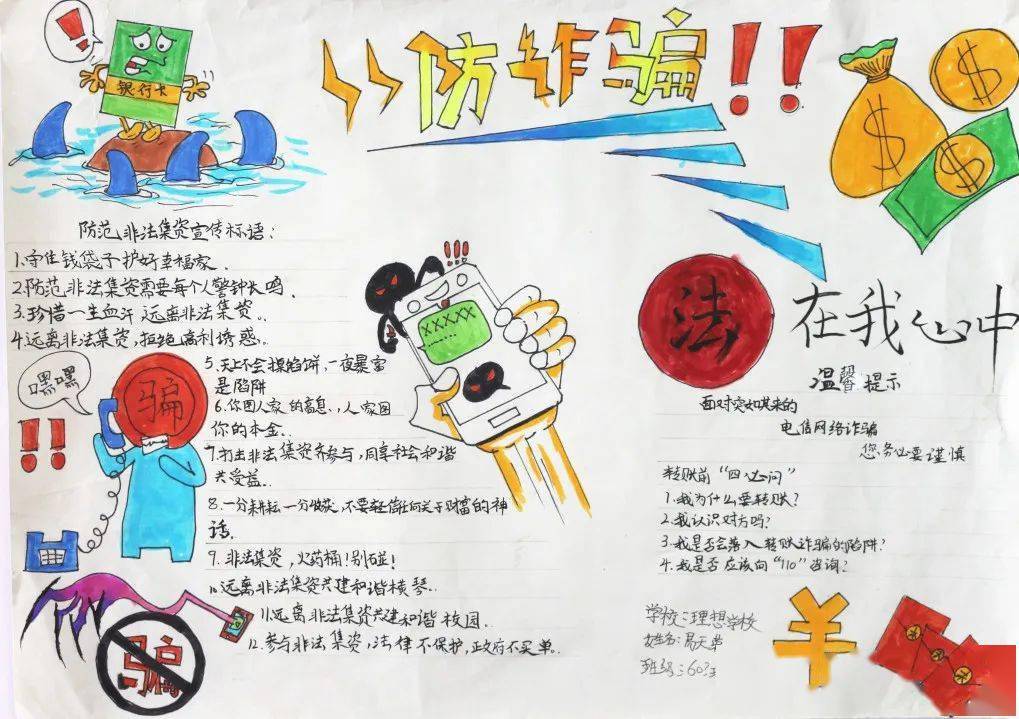 防诈骗!!
!
银行卡
防范非法集资宣传标语:
1.守住钱袋子护好幸福家.
2.防范非法集资需要每个人警钟长鸣.
3.珍惜一生血汗 远离非法集资..
4.远离非法集资,拒绝高利诱惑..
5.天上不会掉馅饼,一夜暴富
是陷阱
6.你图人家的高息..,人家图
你的本金..
7.打击非法集资齐参与,同享社会和谐
共受益..
8.一分耕耘一分收获,不要轻信任何关于财富的神
话.
9.非法集资,火药桶!别碰!
10.远离非法集资共建和谐横琴..
11.远离非法集资共建和谐校园..
12.参与非法集资,法律不保护,政府不买单..
嘿嘿
!!
骗
骗
!!!
XXXXX
法在我心中
温馨提示
面对突如其来的
电信网络诈骗
您务必要谨慎
转账前“四必问”
1.我为什么要转账?
2.我认识对方吗?
3.我是否会落入转账诈骗的陷阱?
4.我是否应该向“110”咨询?
学校:理想学校
姓名:
班级: